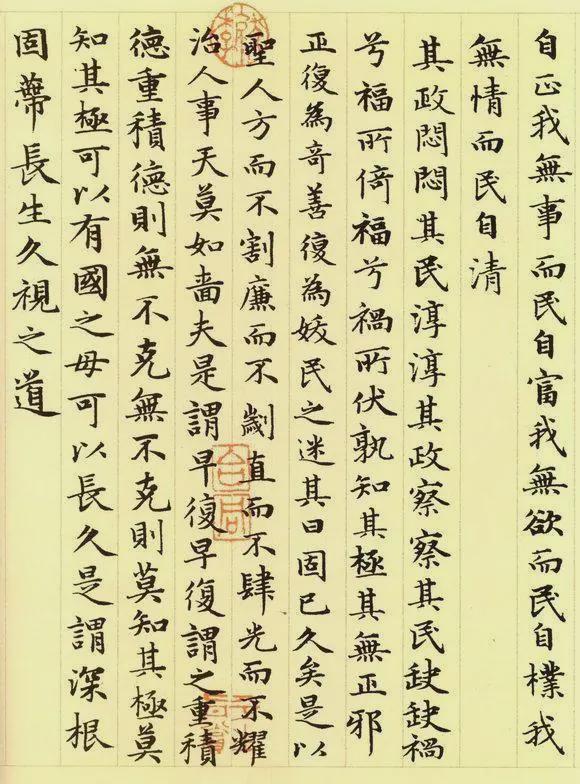 自正我無事而民自富我無欲而民自樸我
無情而民自清
其政悶悶其民淳淳其政察察其民缺缺禍
兮福所倚福兮禍所伏孰知其極其無正邪
正復為奇善復為妖民之迷其日固已久矣是以
聖人方而不割廉而不劌直而不肆光而不耀
治人事天莫如嗇夫是謂早復早復謂之重積
德重積德則無不克無不克則莫知其極莫
知其極可以有國有國之母可以長久是謂深根
固蔕長生久視之道